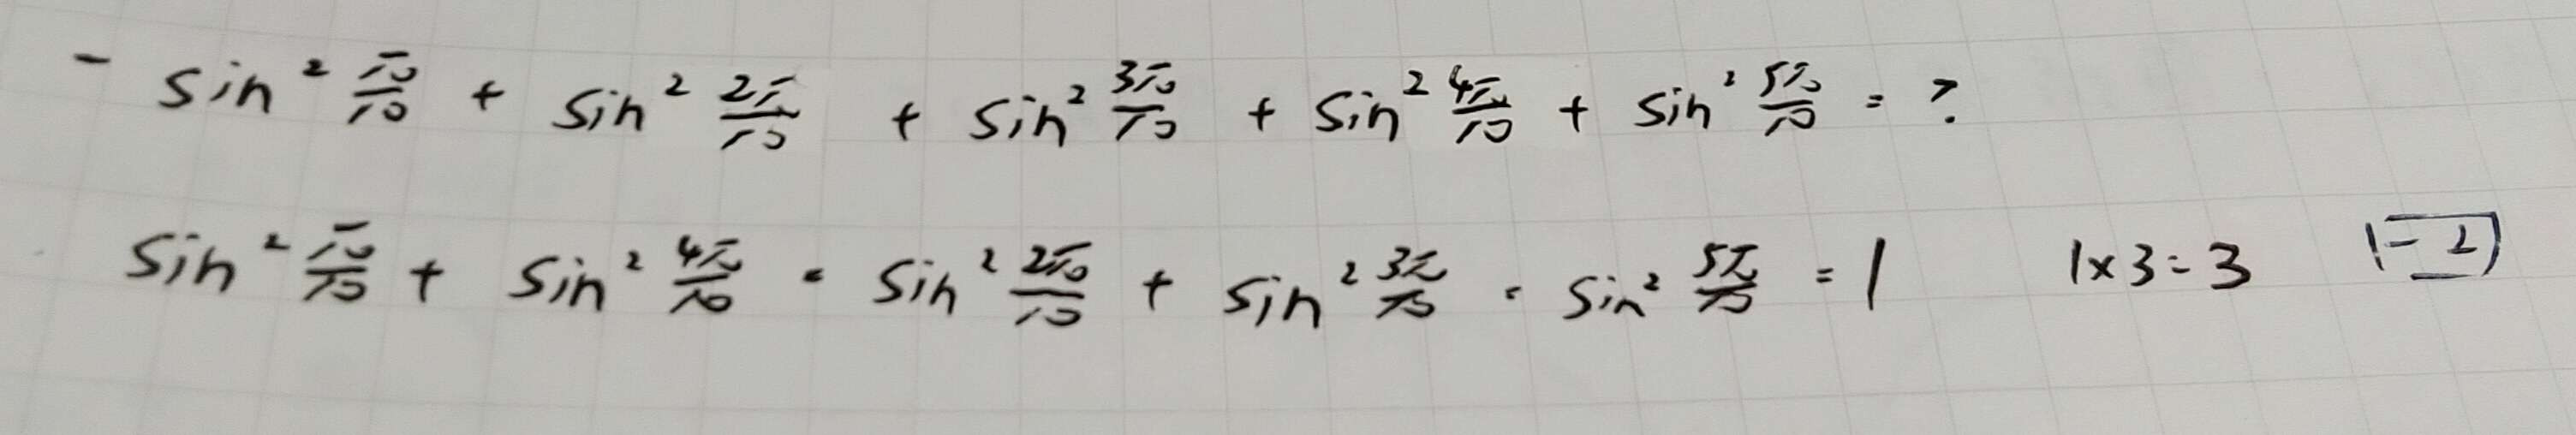 - sin² π/10 + sin² 2π/10 + sin² 3π/10 + sin² 4π/10 + sin² 5π/10 = ?
sin² π/10 + sin² 4π/10 = sin² 2π/10 + sin² 3π/10 = sin² 5π/10 = 1 1×3=3